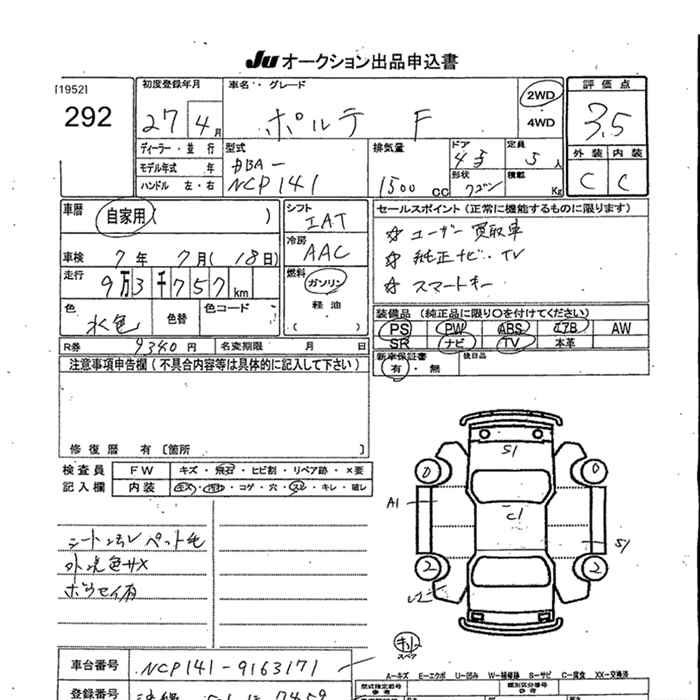 Ju オークション出品申込書
[1952]
292
初度登録年月
27 4月
車名・グレード
ポルテ F
2WD
4WD
評価点
3.5
外装 内装
C C
ディーラー・並行
モデル年式 年
ハンドル 左・右
型式
DBA-
NCP141
排気量
1500 CC
ドア
4
形状
ワゴン
定員
5人
積載
Kg
車歴
自家用( )
車検 7年 7月(18日)
走行
9万3千757km
色
水色
色替
色コード
シフト
IAT
冷房
AAC
燃料
ガソリン
軽油
( )
セールスポイント(正常に機能するものに限ります)
☆ ユーザー買取車
☆ 純正ナビ・TV
☆ スマートキー
装備品(純正品に限り○を付けてください)
PS PW ABS エアB AW
SR ナビ TV 本革
新車保証書
有・無
後日品
R券 9340円 名変期限 月 日
注意事項申告欄(不具合内容等は具体的に記入して下さい)
修復暦 有〔箇所 〕
検査員
記入欄
FW キズ・飛石・ヒビ割・リペア跡・×要
内装 キズ・汚れ・コゲ・穴・スレ・キレ・破レ
シート汚レ ペット毛
外現色サメ
ボウセイ有
S1
0 0
A1
C1
S1
2 2
スペア
A-キズ E-エクボ U-凹み W-補修跡 S-サビ C-腐食 XX-交換済
車台番号 NCP141-9163171
登録番号